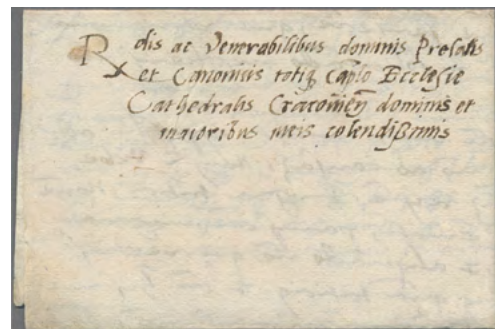 Rdis ac Venerabilibus dominis Prelatis
et Canonicis totiq caplo Ecclesie
Cathedralis Cracovien dominis et
maioribus meis colendißimis